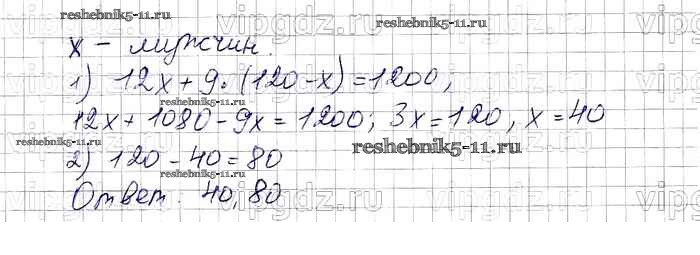 reshebnik5-11.ru
reshebnik5-11.ru
x – мужчин.
1) 12x + 9·(120–x) = 1200,
reshebnik5-11.ru
12x + 1080 – 9x = 1200; 3x = 120, x = 40
2) 120 – 40 = 80
reshebnik5-11.ru
reshebnik5-11.ru
Ответ: 40, 80
reshebnik5-11.ru
vipgdz.ru